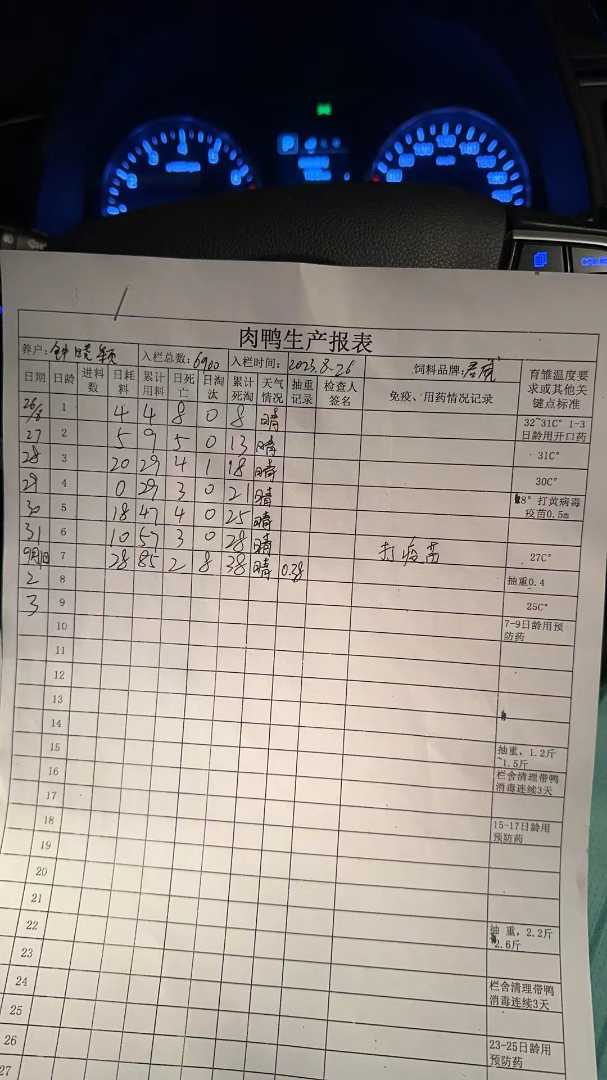 肉鸭生产报表
养户: 钟晓颖 入栏总数: 6900 入栏时间: 2023.8-26 饲料品牌: 君威 育雏温度要求或其他关键点标准
日期 日龄 进料数 日耗料 累计用料 日死亡 日淘汰 累计死淘 天气情况 抽重记录 检查人签名 免疫、用药情况记录
26/8 1 4 4 8 0 8 晴 32~31C° 1-3日龄用开口药
27 2 5 9 5 0 13 晴 31C°
28 3 20 29 4 1 18 晴 30C°
29 4 0 29 3 0 21 晴 28° 打黄病毒疫苗0.5m
30 5 18 47 4 0 25 晴
31 6 10 57 3 0 28 晴 打疫苗 27C°
9月1日 7 28 85 2 8 38 晴 0.38 抽重0.4
2 8 25C°
3 9 7-9日龄用预防药
10
11
12
13
14
15 抽重, 1.2斤~1.5斤
16 栏舍清理带鸭消毒连续3天
17
18 15-17日龄用预防药
19
20
21
22 抽 重, 2.2斤 2.6斤
23
24 栏舍清理带鸭消毒连续3天
25
26 23-25日龄用预防药
27